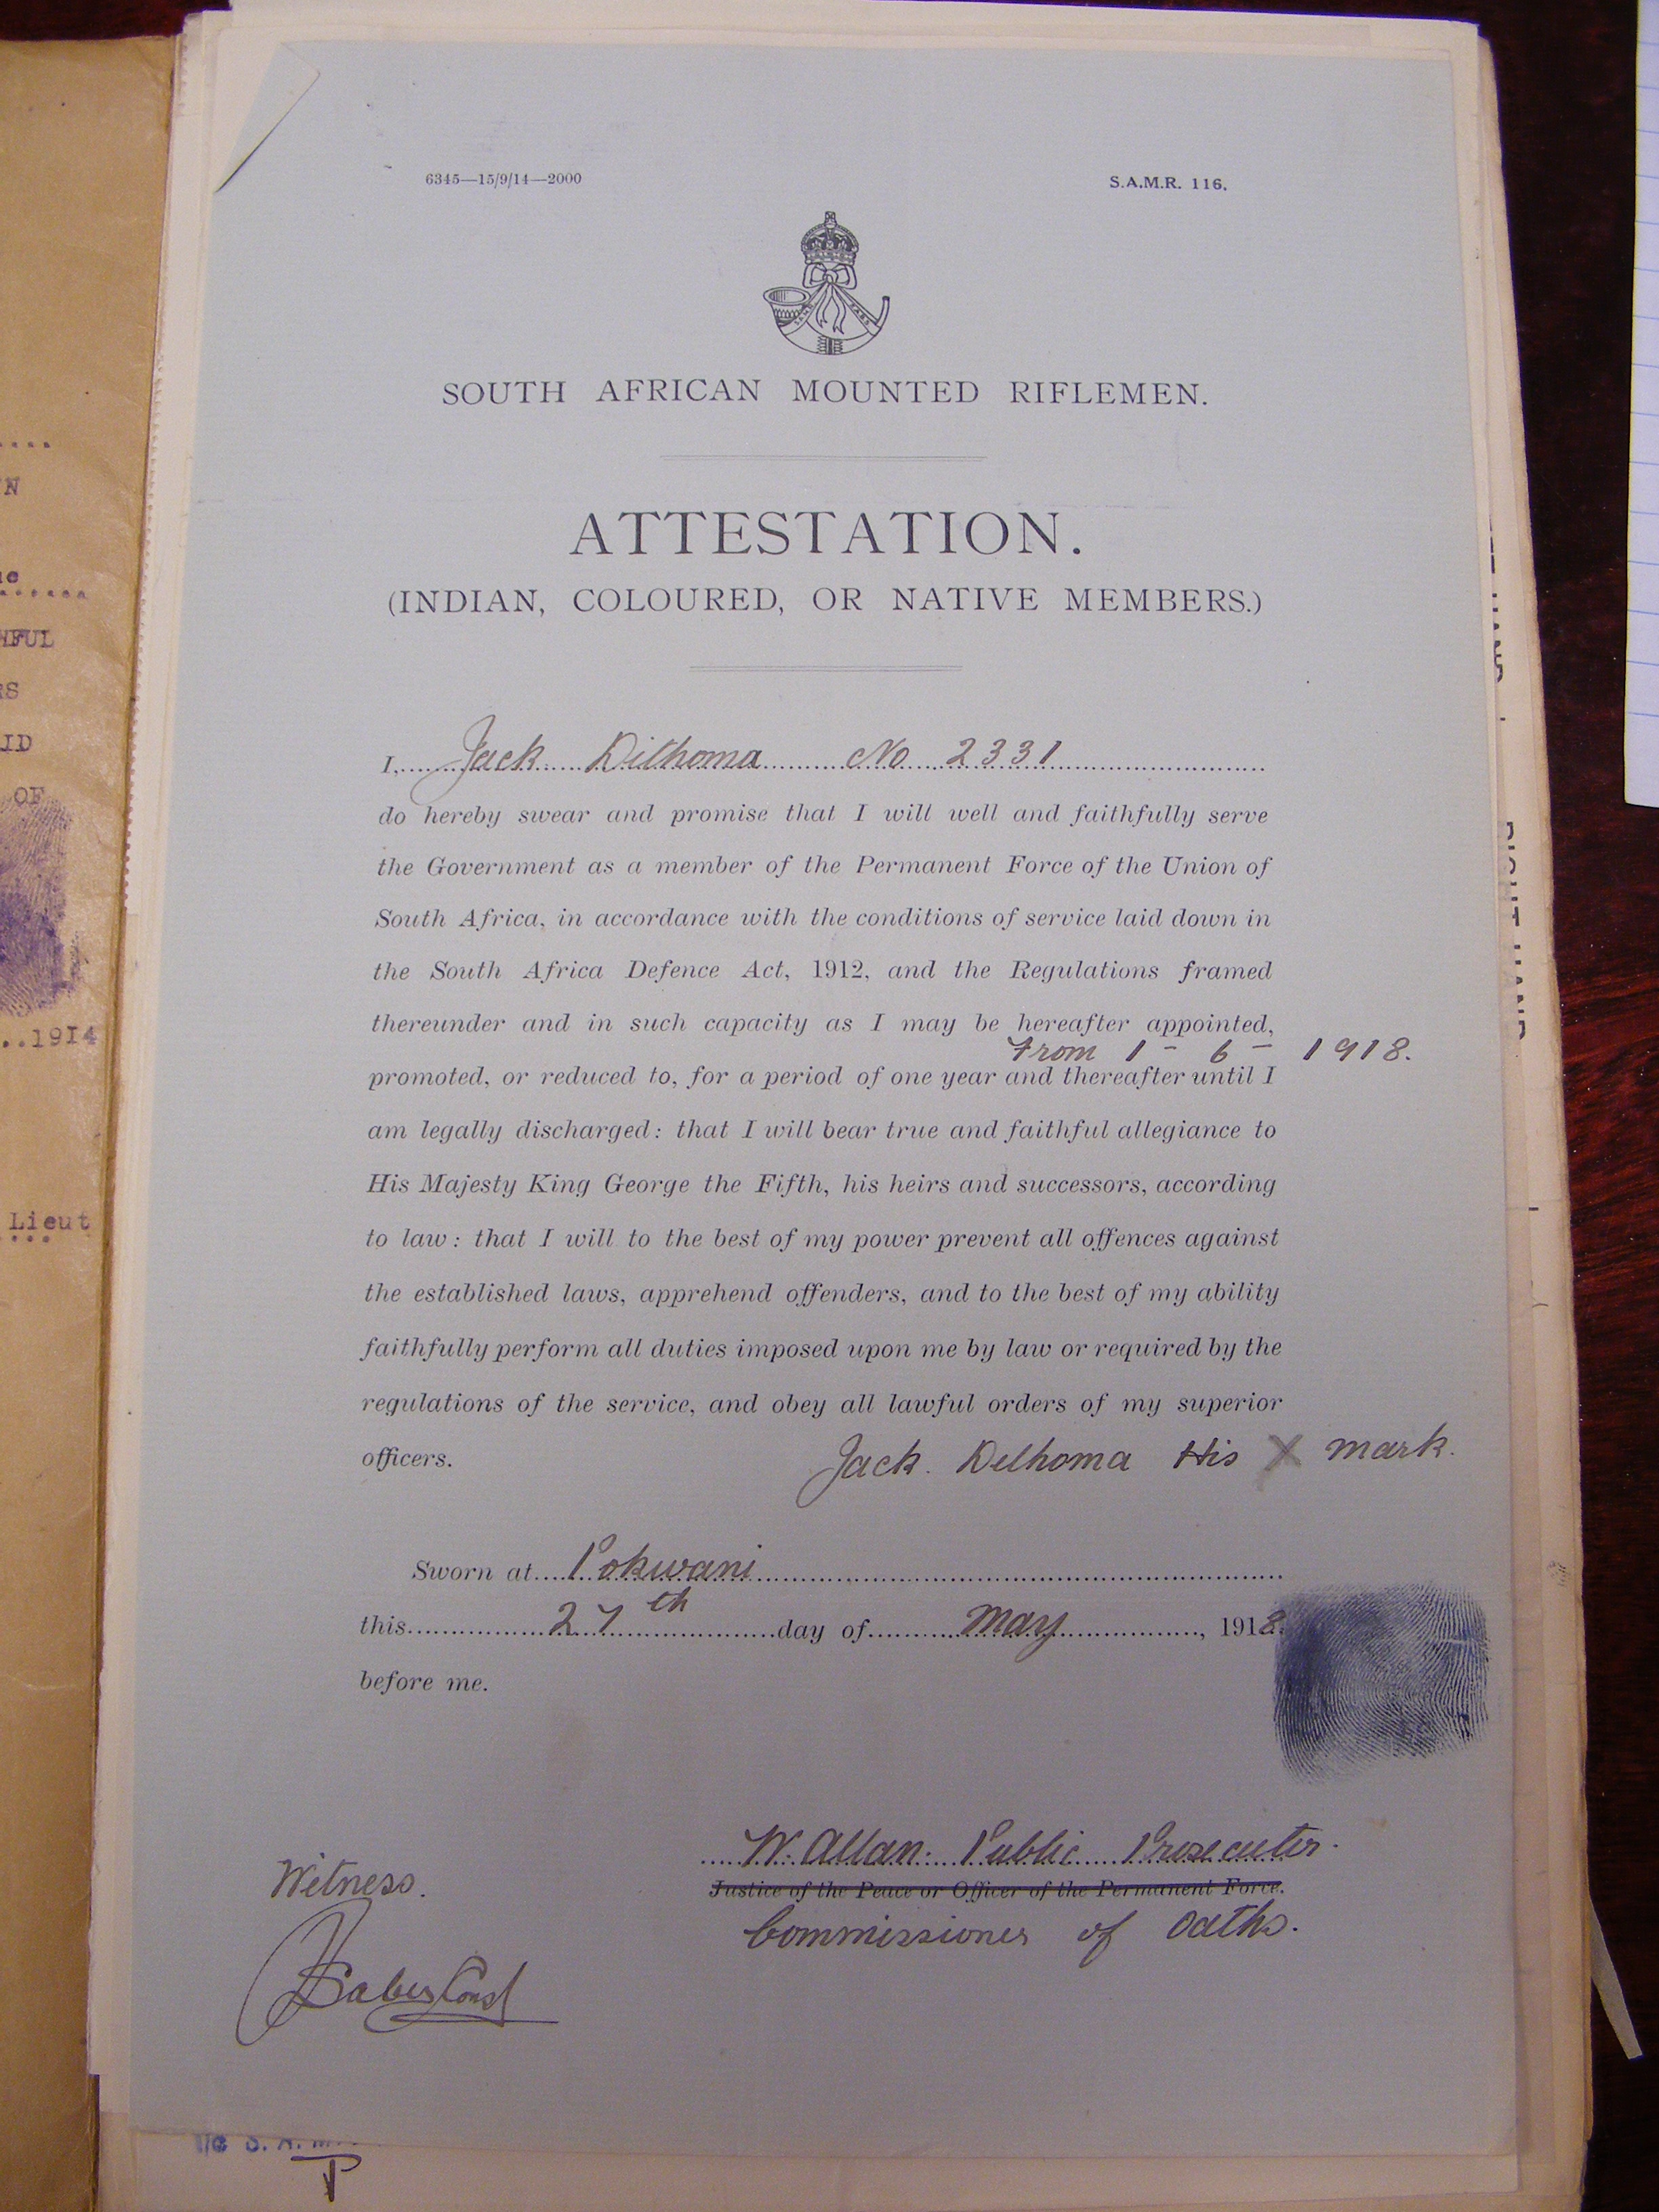 6345—15/9/14—2000
S.A.M.R. 116.
SOUTH AFRICAN MOUNTED RIFLEMEN.
ATTESTATION.
(INDIAN, COLOURED, OR NATIVE MEMBERS.)
I, Jack Dithoma No 2331
do hereby swear and promise that I will well and faithfully serve
the Government as a member of the Permanent Force of the Union of
South Africa, in accordance with the conditions of service laid down in
the South Africa Defence Act, 1912, and the Regulations framed
thereunder and in such capacity as I may be hereafter appointed,
From 1 - 6 - 1918.
promoted, or reduced to, for a period of one year and thereafter until I
am legally discharged: that I will bear true and faithful allegiance to
His Majesty King George the Fifth, his heirs and successors, according
to law: that I will to the best of my power prevent all offences against
the established laws, apprehend offenders, and to the best of my ability
faithfully perform all duties imposed upon me by law or required by the
regulations of the service, and obey all lawful orders of my superior
officers.
Jack. Delhoma His X mark.
Sworn at Pokwani
this 27th day of May, 1918.
before me.
W. Allan. Public Prosecuter.
Justice of the Peace or Officer of the Permanent Force.
Commissioner of Oaths.
Witness.
Const
N
WFUL
RS
ID
OF
..1914
Lieut
RIGHT HAND
P